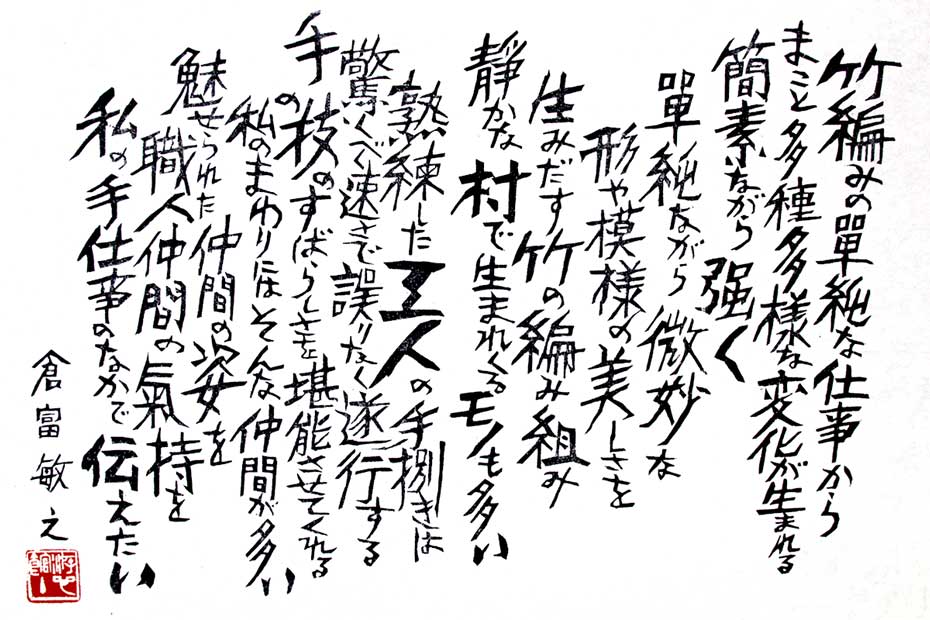 竹編みの單純な仕事から
まこと多種多様な変化が生まれる
簡素ながら强く
單純ながら微妙な
形や模様の美しさを
生みだす竹の編み組み
靜かな村で生まれくるモノも多い
熟練した工人の手捌きは
驚くべく速さで誤りなく遂行する
手の技のすばらしさを堪能させてくれる
私のまわりはそんな仲間が多い
魅せられた仲間の姿を
職人仲間の氣持を
私の手仕事のなかで伝えたい
倉富敏之